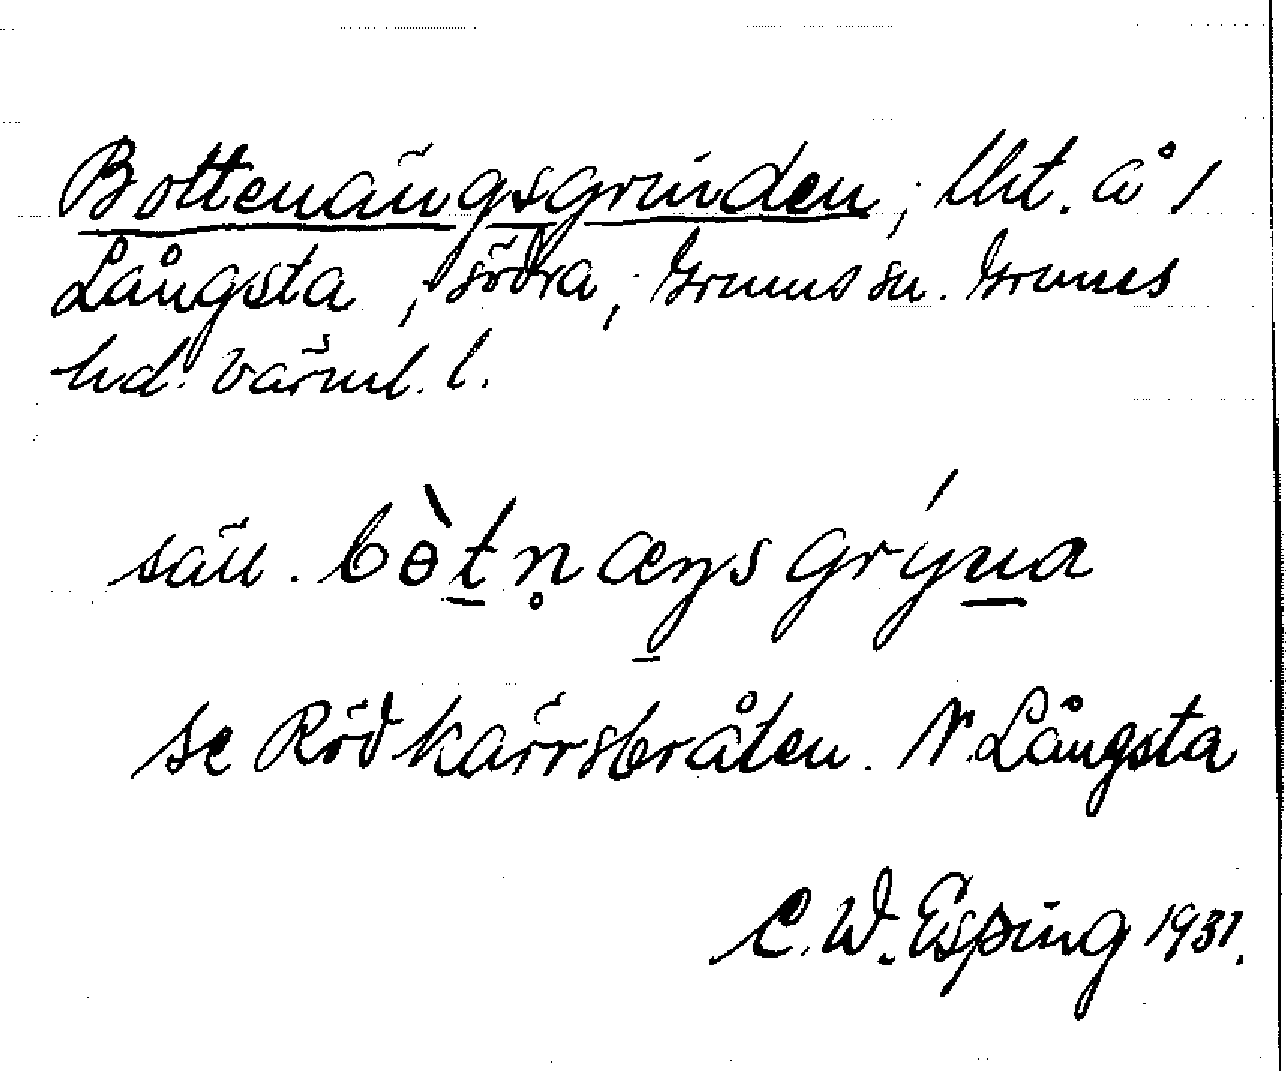 Bottenängsgrinden, lht. å 1
Långsta, södra, Grums sn. Grums
hd. Värml. l.
säu. bòt̠n̥æŋs grýn̠a
se Rödkärrsbråten. N. Långsta
C. W. Esping 1931.